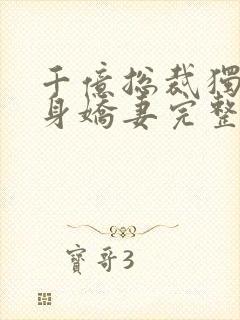 千億总裁獨
身嬌妻完整
寶哥3